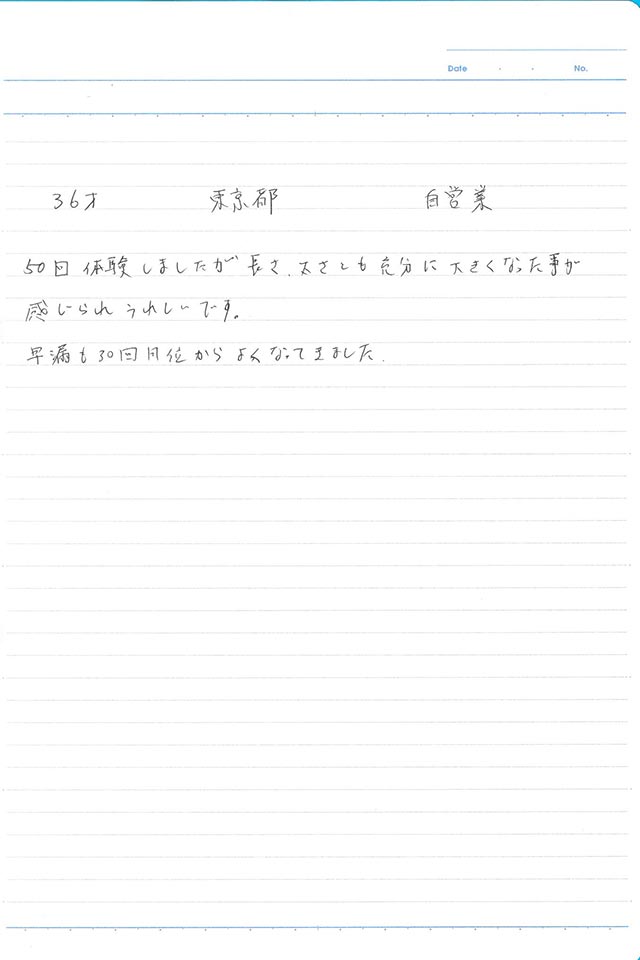 Date ・ ・ No.
36才 東京都 自営業
50回体験しましたが長さ、太さとも充分に大きくなった事が
感じられうれしいです。
早漏も30回目位からよくなってきました.